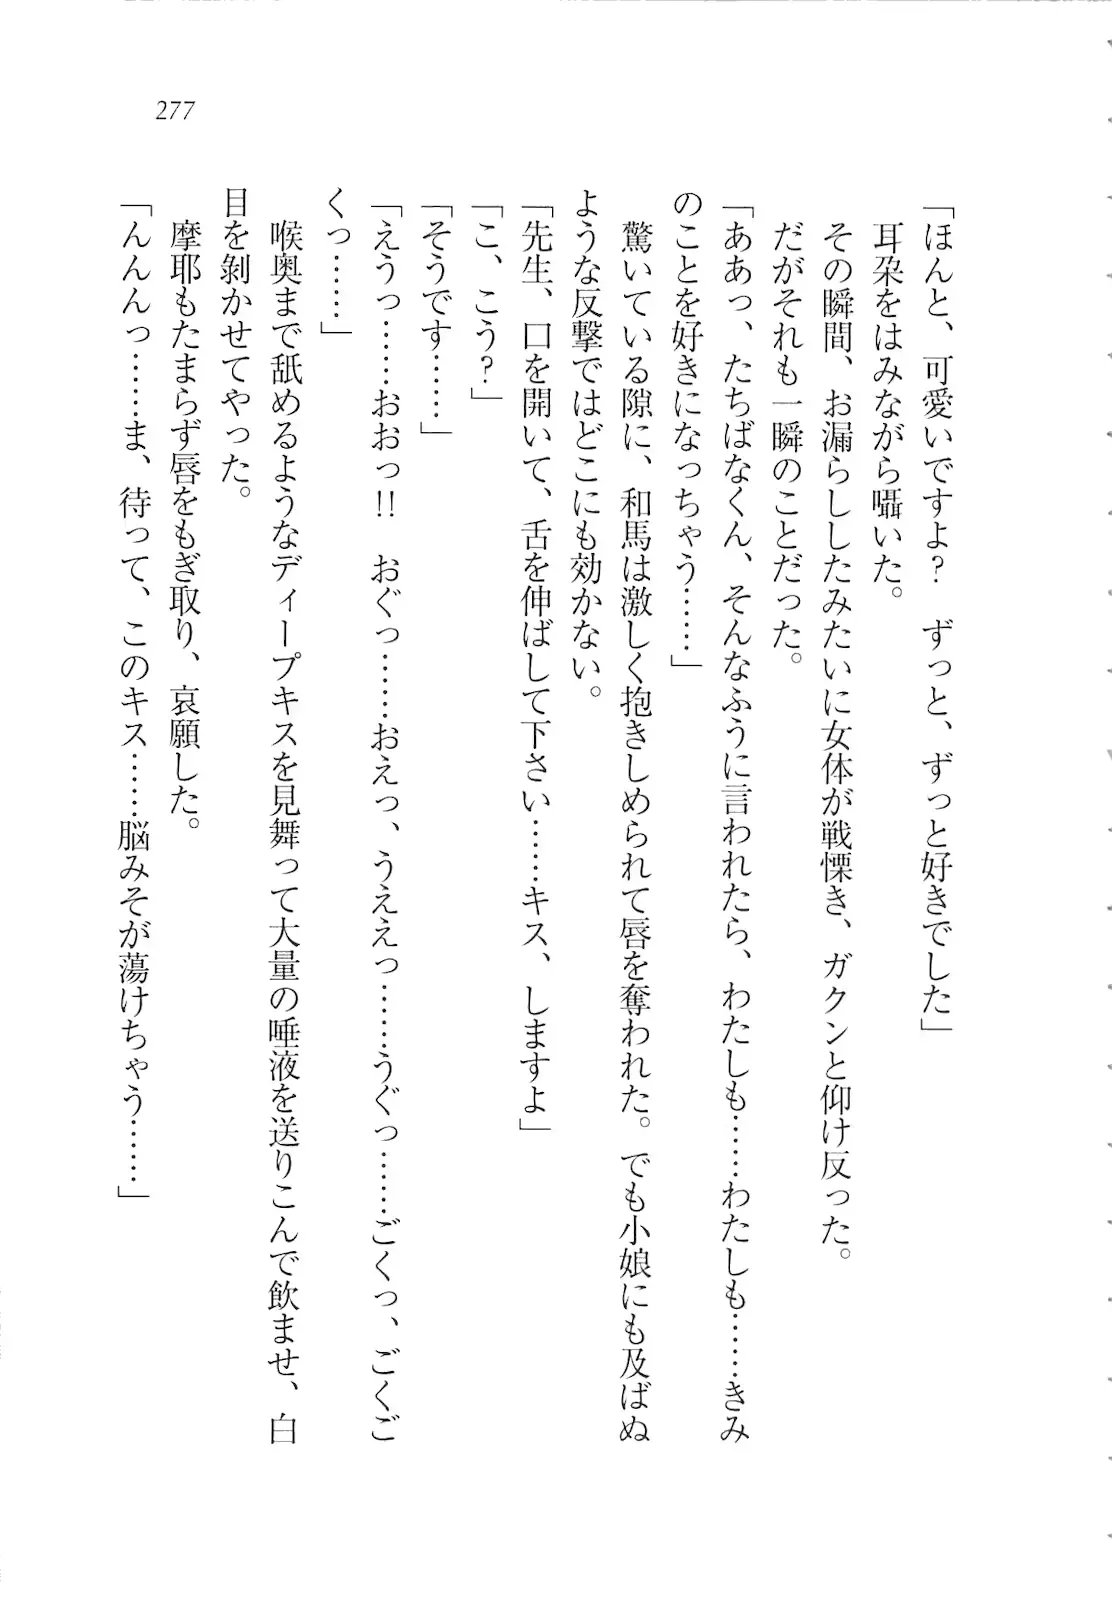 277
「ほんと、可愛いですよ？　ずっと、ずっと好きでした」
耳朶をはみながら囁いた。
その瞬間、お漏らししたみたいに女体が戦慄き、ガクンと仰け反った。
だがそれも一瞬のことだった。
「ああっ、たちばなくん、そんなふうに言われたら、わたしも……わたしも……きみ
のことを好きになっちゃう……」
驚いている隙に、和馬は激しく抱きしめられて唇を奪われた。でも小娘にも及ばぬ
ような反撃ではどこにも効かない。
「先生、口を開いて、舌を伸ばして下さい……キス、しますよ」
「こ、こう？」
「そうです……」
「えうっ……おおっ!!　おぐっ……おえっ、うええっ……うぐっ……ごくっ、ごくご
くっ……」
喉奥まで舐めるようなディープキスを見舞って大量の唾液を送りこんで飲ませ、白
目を剝かせてやった。
摩耶もたまらず唇をもぎ取り、哀願した。
「んんんっ……ま、待って、このキス……脳みそが蕩けちゃう……」